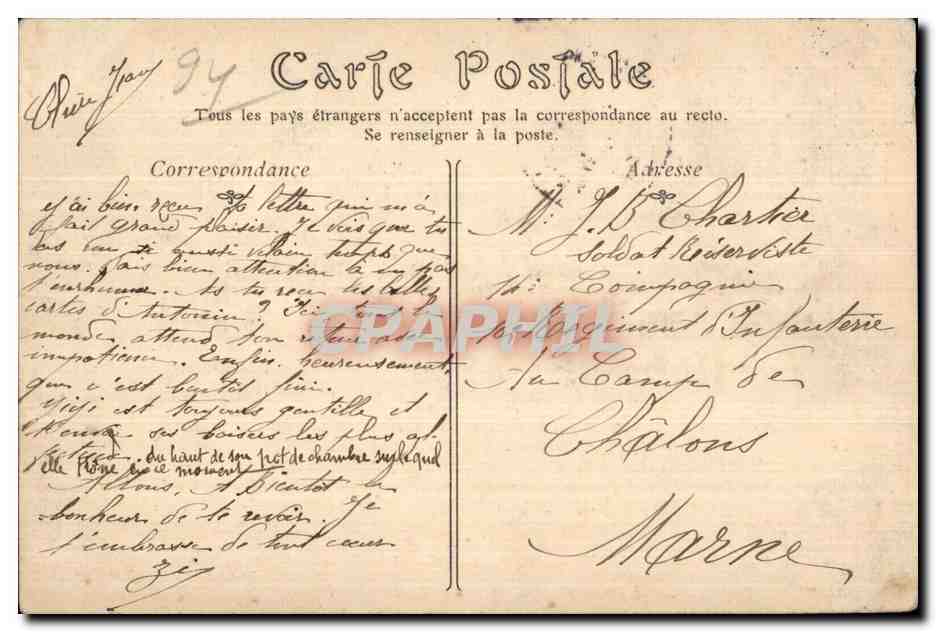 Chère Jean
94
Carte Postale
Tous les pays étrangers n'acceptent pas la correspondance au recto.
Se renseigner à la poste.
Correspondance
J'ai bien reçu ta lettre qui m'a
fait grand plaisir. Je vois que tu
as eu aussi vilain temps que
nous. Fais bien attention à pas
t'enrhumer. As tu reçu les belles
cartes d'Antonin? Ici tout le
monde attend ton retour avec
impatience. Enfin heureusement,
que c'est bientôt fini.
Gigi est toujours gentille et
t'envoie ses baisers les plus
du haut de son pot de chambre sur lequel
elle trône en ce moment
Allons, A bientôt le
bonheur de te revoir. Je
t'embrasse de tout coeur
Adresse
M. J. B. Chartier
Soldat Réserviste
Compagnie
Regiment d'Infanterie
Au Camp de
Châlons
Marne
CPAPHIL